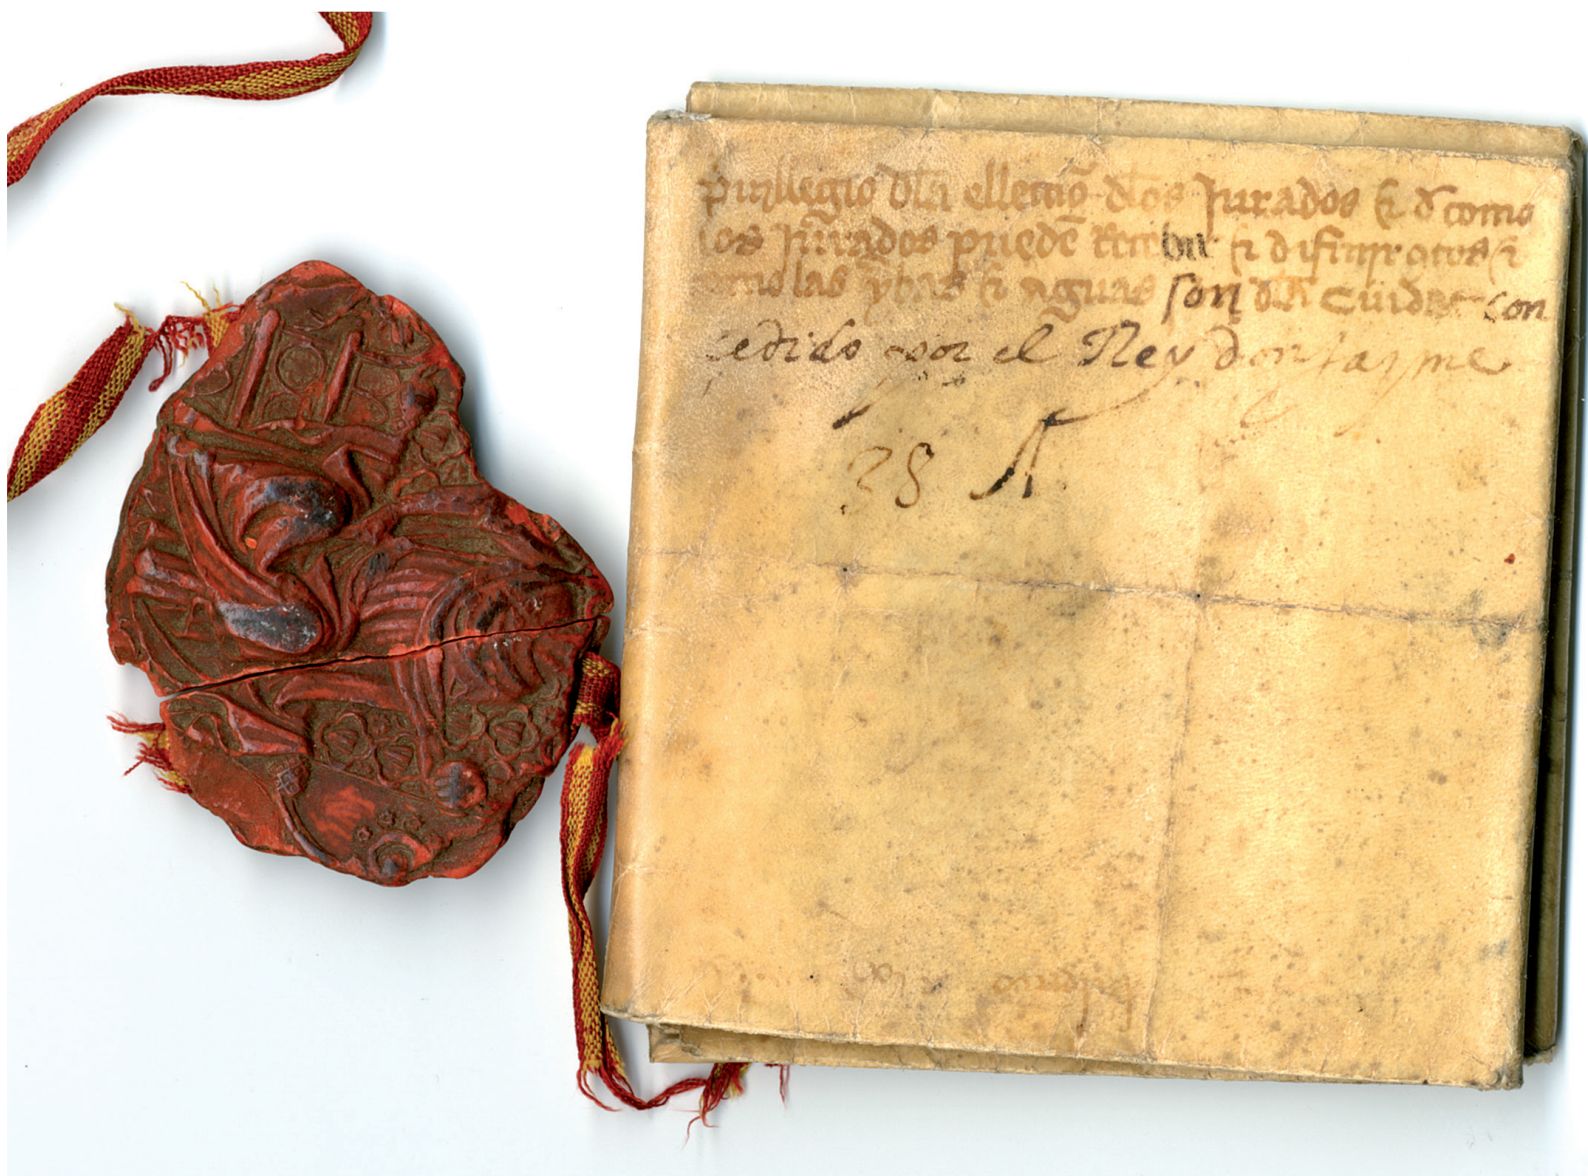 priuilegio dla ellectiõ dlos Jurados & d como
los Jurados puedẽ & difinir actos &
como las yerbas & aguas son dla Ciudat con
cedido por el Rey don Jayme
38 A